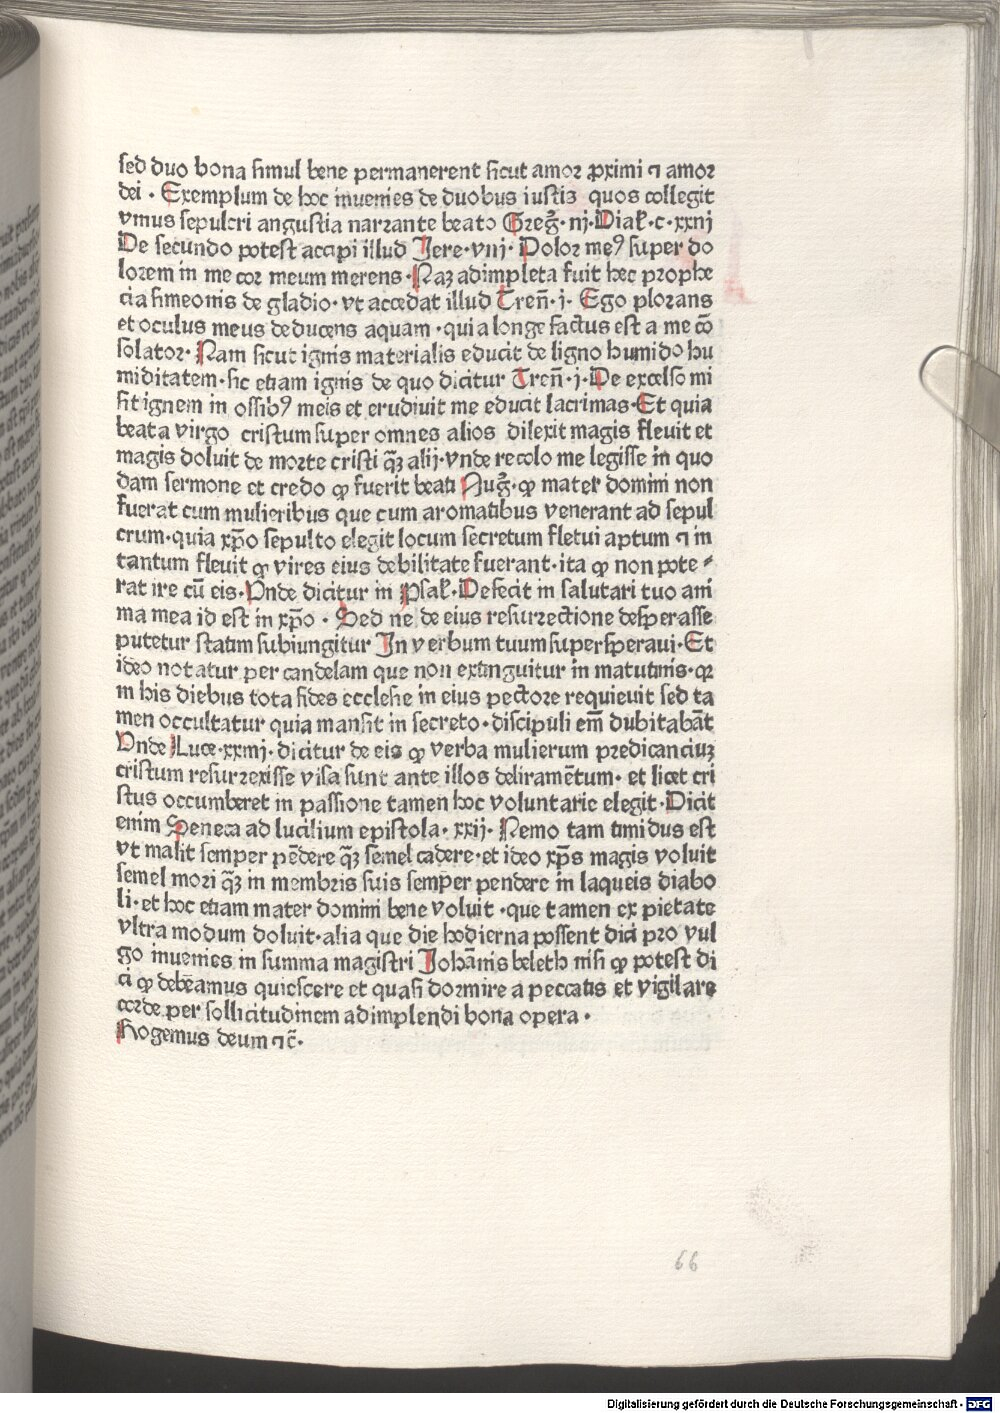 sed duo bona simul bene permanerent sicut amor ꝓximi ⁊ amor
dei · Exemplum de hoc inuenies de duobus iustiꝫ quos collegit
vnius sepulcri angustia narrante beato Greg̃· iij·Dial̃·c·xxiij
De secundo potest accipi illud Jere·viij· Dolor meꝰ super do
lorem in me cor meum merens·Naꝫ adimpleta fuit hec prophe
cia simeonis de gladio·vt accedat illud Treñ·j· Ego plorans
et oculus meus deducens aquam·quia longe factus est a me cõ
solator· Nam sicut ignis materialis educit de ligno humido hu
miditatem·sic etiam ignis de quo dicitur Treñ·j·De excelso mi
sit ignem in ossibꝰ meis et erudiuit me educit lacrimas·Et quia
beata virgo cristum super omnes alios dilexit magis fleuit et
magis doluit de morte cristi q̃ꝫ alij·vnde recolo me legisse in quo
dam sermone et credo ꝙ fuerit beati Aug̃·ꝙ mater domini non
fuerat cum mulieribus que cum aromatibus venerant ad sepul
crum·quia xp̃o sepulto elegit locum secretum fletui aptum ⁊ in
tantum fleuit ꝙ vires eius debilitate fuerant·ita ꝙ non pote⸗
rat ire cũ eis·Vnde dicitur in Psal̃·Defecit in salutari tuo ani
ma mea id est in xp̃o · Sed ne de eius resurrectione desperasse
putetur statim subiungitur Jn verbum tuum supersperaui·Et
ideo notatur per candelam que non extinguitur in matutinis·ꝙ
in his diebus tota fides ecclesie in eius pectore requieuit sed ta
men occultatur quia mansit in secreto·discipuli em̃ dubitabãt
Vnde Luce·xxiiij·dicitur de eis ꝙ verba mulierum predicanciuꝫ
cristum resurrexisse visa sunt ante illos deliramẽtum· et licet cri
stus occumberet in passione tamen hoc voluntarie elegit·Dicit
enim Seneca ad lucilium epistola·xxij· Nemo tam timidus est
vt malit semper pẽdere q̃ꝫ semel cadere·et ideo xp̃s magis voluit
semel mori q̃ꝫ in membris suis semper pendere in laqueis diabo
li·et hoc etiam mater domini bene voluit ·que tamen ex pietate
vltra modum doluit·alia que die hodierna possent dici pro vul
go inuenies in summa magistri Johãnis beleth nisi ꝙ potest di
ci ꝙ debẽamus quiescere et quasi dormire a peccatis et vigilare
corde per sollicitudinem adimplendi bona opera ·
Rogemus deum ⁊c̃·
66
Digitalisierung gefördert durch die Deutsche Forschungsgemeinschaft - DFG